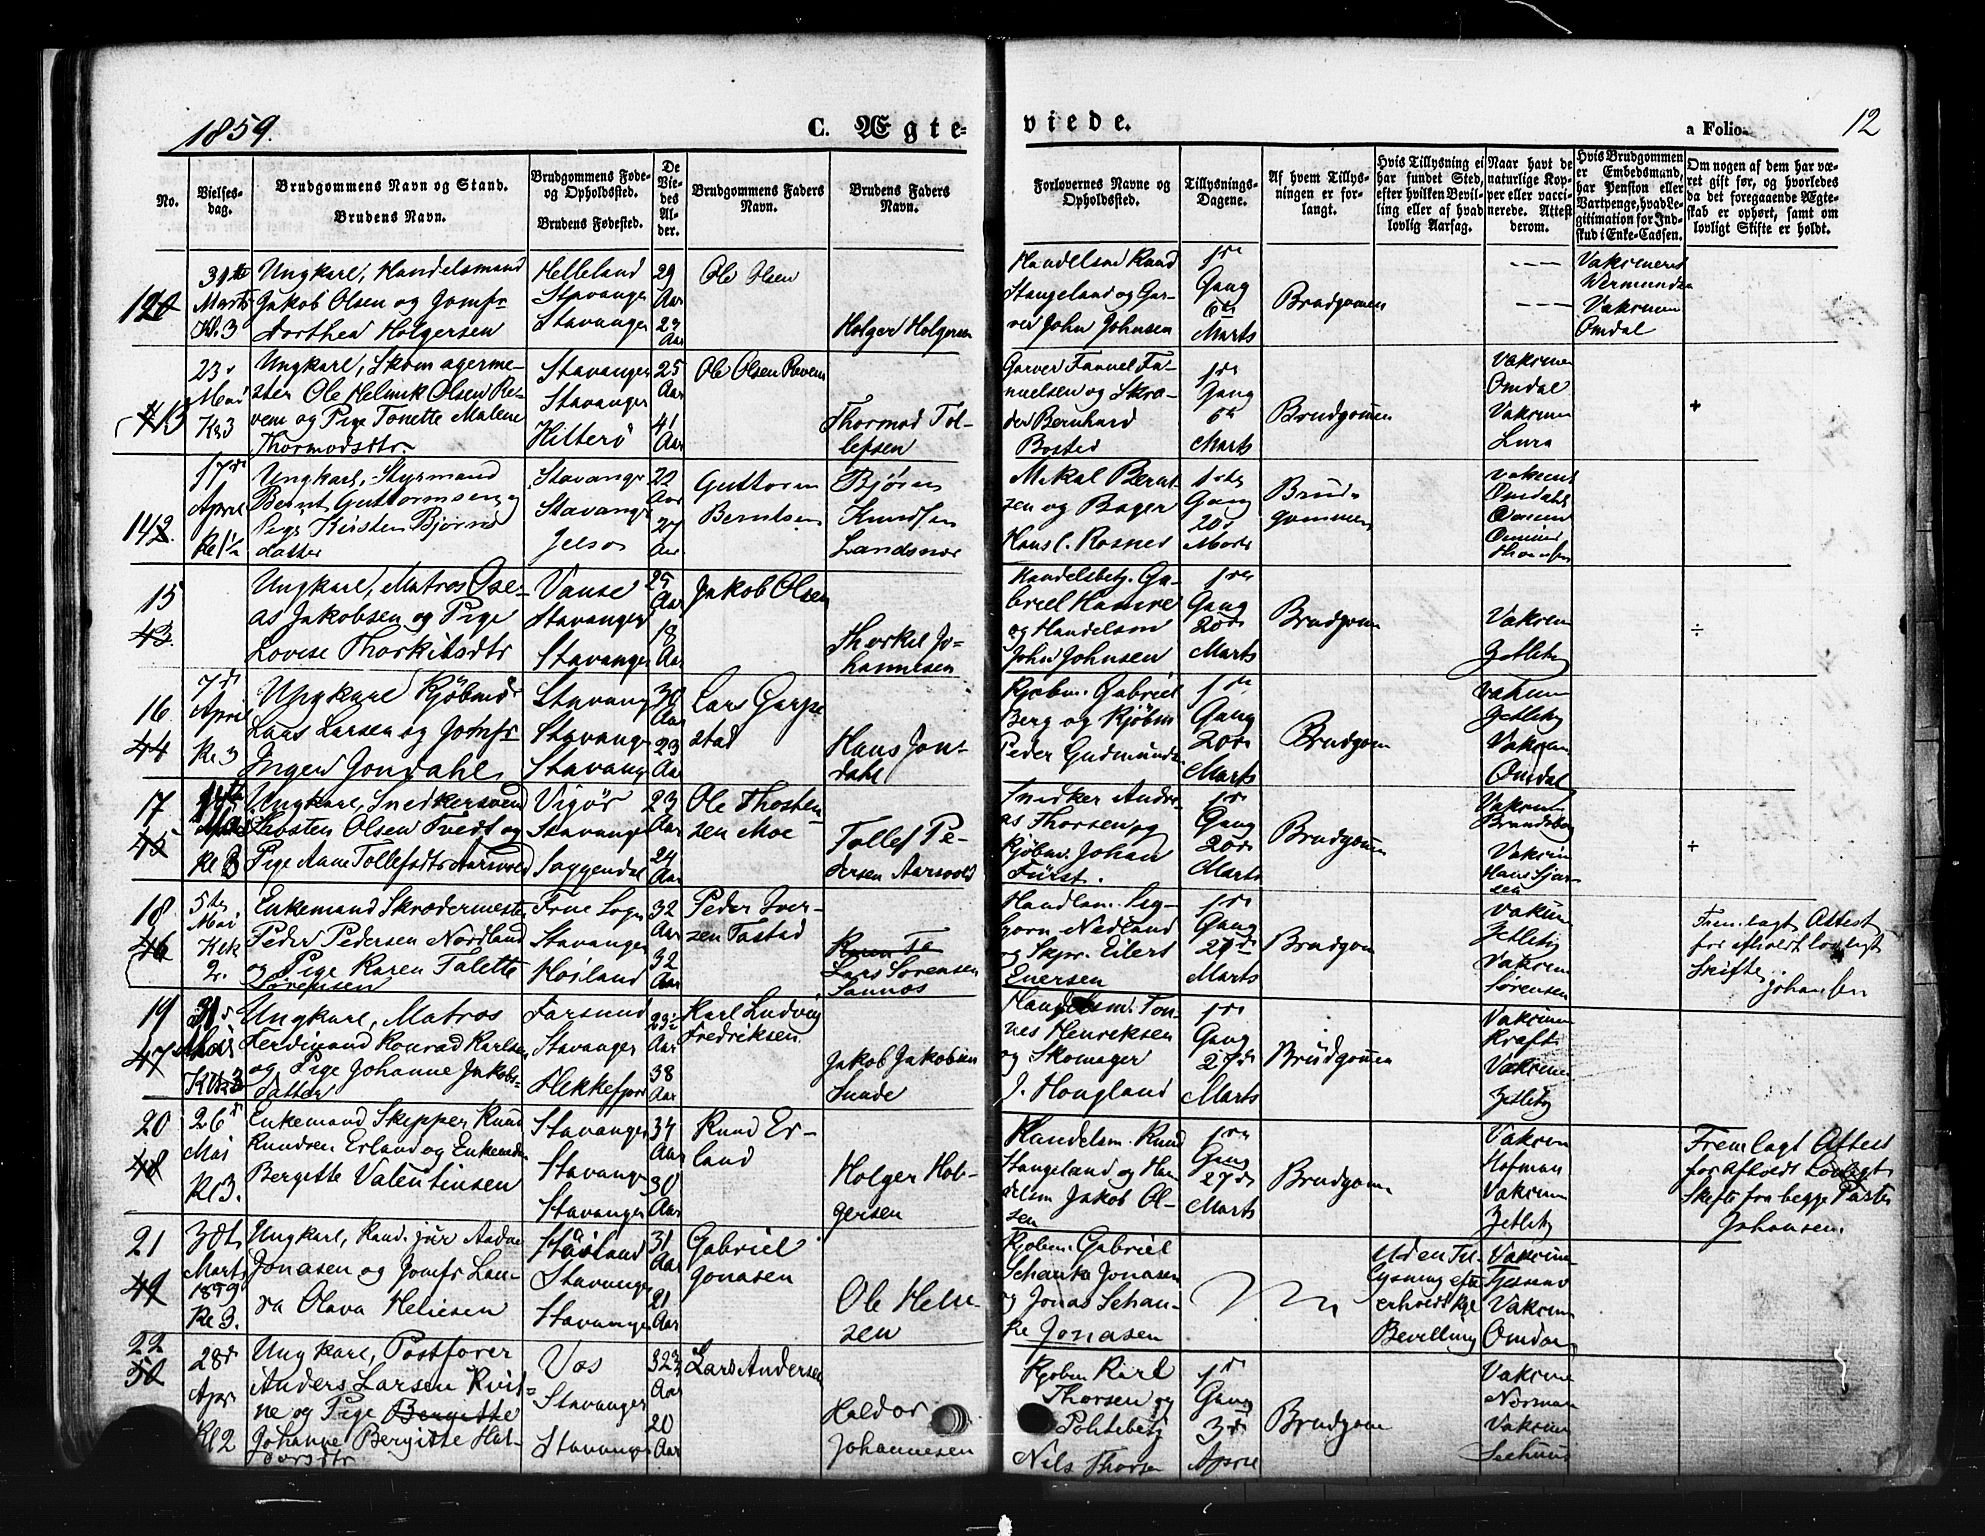 1859.
C. Ægte-
viede.
a Folio
12
No.
Vielses-
dag.
Brudgommens Navn og Stand.
Brudens Navn.
Brudgommens Føde-
og Opholdssted.
Brudens Fødested.
De
Vie-
des
Al-
der.
Brudgommens Faders
Navn.
Brudens Faders
Navn.
Forlovernes Navne og
Opholdssted.
Tillysnings-
Dagene.
Af hvem Tillys-
ningen er for-
langt.
Hvis Tillysning ei
har fundet Sted,
efter hvilken Bevil-
ling eller af hvad
lovlig Aarsag.
Naar havt de
naturlige Kop-
per eller vacci-
nerede. Attest
derom.
Hvis Brudgommen
er Embedsmand,
har Pension eller
Vartpenge, hvad Le-
gitimation for Ind-
skud i Enke-Cassen.
Om nogen af dem har væ-
ret gift før, og hvorledes
da det foregaaende Ægte-
skab er ophørt, samt om
lovligt Skifte er holdt.
Marts
Kl. 3
Ungkarl, Handelsmand
Jakob Olsen og Jomfr
Dorthea Holgersen
Helleland
Stavanger
Stavanger
29
Aar
23
Aar
Ole Olsen
Holger Holgersen
Handelsm Knud
Stangeland og Gar-
ver John Johnsen
1ste
Gang
6te
Marts
Brudgomen
Vakcineret
Vermundsen
Vakcinen
Omdal
23
Mai
Kl 3
Ungkarl, Skomagerme-
ster Ole Helmik Olsen Re-
vem og Pige Tonette Malene
Thormodsdtr.
Stavanger
Stavanger
Hitterö
25
Aar
41
Aar
Ole Olsen Revem
Thormod Tol-
lefsen
Garver Fanuel Fa-
nuelsen og Skræ-
der Bernhard
Bosted
Gang
6te
Marts
Brudgomen
Vakcinen
Omdal
Vakcinen
Lura
+
17de
April
Kl 1½
Ungkarl, Styrmand
Bernt Guttormsen og
Pige Kirsten Bjørns
datter
Stavanger
Stavanger
Jelsø
22
Aar
27
Aar
Guttorm
Berntsen
Bjørn
Knudsen
Landsnæs
Mikal Bernt-
sen og Bager
Hans C. Rosnes
1ste
Gang
20de
Marts
Brud-
gommen
15
43
Ungkarl, Matros Ose-
as Jakobsen og Pige
Lovise Thorkildsdtr
Vanse
Stavanger
Stavanger
25
Aar
18
Aar
Jakob Olsen
Thorkel Jo-
hannesen
Handelsbetj. Ga-
briel Hamre
og Handelsm
John Johnsen
Gang
20de
Marts
Brudgomen
Vakcinen
Zetlitz
÷
16
44
7de
April
Kl 3
Ungkarl Kjöbmd
Laus Larsen og Jomfr
Inger Jondahl
Stavang
Stavang
Stavang
30
Aar
23
Aar
Lars Garpe-
stad
Hans Jon-
dahl
Kjøbm. Gabriel
Berg og Kjøbm
Peder Gudmunds
Gang
20de
Marts
Brudgom
Vakcinen
Zetlitz
Vakcinen
Omdal
17
45
Kl 3
Ungkarl, Snedkersvend
Thosten Olsen Tvedt og
Pige Anne Tollefsdtr Aarsvold
Vigör
Stavanger
Soggendal
23
Aar
24
Aar
Ole Thosten-
sen Moe
Tollef Pe-
dersen Aarsvold
Snedker Andre-
as Thorsen og
Kjøbm. Johan
Fürst.
Gang
20de
Marts
Brudgomen
Vakcinen
Brandsberg
Vakcinen
÷
18
46
5te
Mai
Enkemand Skrædermester
Peder Pedersen Nordland
og Pige Karen Talette
Sørensen
Frue Sogn
Stavanger
Høiland
32
Aar
32
Aar
Peder Iver-
sen Tastad
Lars Sørensen
Sannæs
Handlsm. Sig-
bjørn Nedland
og Skpr. Eilert
Enersen
Gang
27de
Marts
Brudgom
Vakcinen
Zetlitz
Vakcinen
Sørensen
Fremlagt Attest
for afholdt lovligt
Skifte.
Johansen
19
47
31
Mai
Ungkarl, Matros
Ferdinand Konrad Karlsen
og Pige Johanne Jakobs-
datter
Farsund
Stavanger
Flekkefjord
23½
Aar
38
Aar
Karl Ludvig
Fredriksen
Jakob Jakobsen
Sunde
Handelsm. Ton-
nes Henriksen
og Skomager
J. Hougland
Gang
27de
Marts
Brudgomen
Vakcinen
Kraft
Vakcinen
Zetlitz
20
48
26de
Mai
Kl 3.
Enkemand Skipper Knud
Knudsen Erland og Enkemdr
Bergitte Valentinsen
Stavanger
Stavanger
Stavanger
34
Aar
30
Aar
Knud Er-
land
Holger Hol-
gersen
Handelsm. Knud
Stangeland og Han
delsm Jakob Ol-
sen
Gang
27de
Marts
Brudgomen
Vakcinen
Hofman
Vakcinen
Zetlitz
Fremlagt Attest
for afholdt Lovligt
Skifte fra begge Parter
Johansen
21
49
3dte
Marts
1859
Kl 3.
Ungkarl, Kand. jur Aadne
Jonasen og Jomfr Lau-
ra Olava Helliesen
Høiland
Stavanger
Stavanger
31
Aar
21
Aar
Gabriel
Jonasen
Ole Hellie-
sen
Kjøbm. Gabriel
Schanke Jonasen
og Jonas Schan-
ke Jonasen
Uden Til-
lysning efter
erholdt kgl
Bevilling
Vakcinen
Vakcinen
Omdal
22
50
28de
Apr
Kl 2
Ungkarl, Postfører
Anders Larsen Kvit-
ne og Pige Bergitte
Johanne Bergitte Hal-
dorsdtr
Vos
Stavanger
Stavanger
Aar
20
Aar
Lars Andersen
Haldor
Johannesen
Kjøbm. Karl
Thorsen og
Politibetj
Nils Thorsen
Gang
3de
April
Brudgom
Vakcinen
Norman
Vakcinen